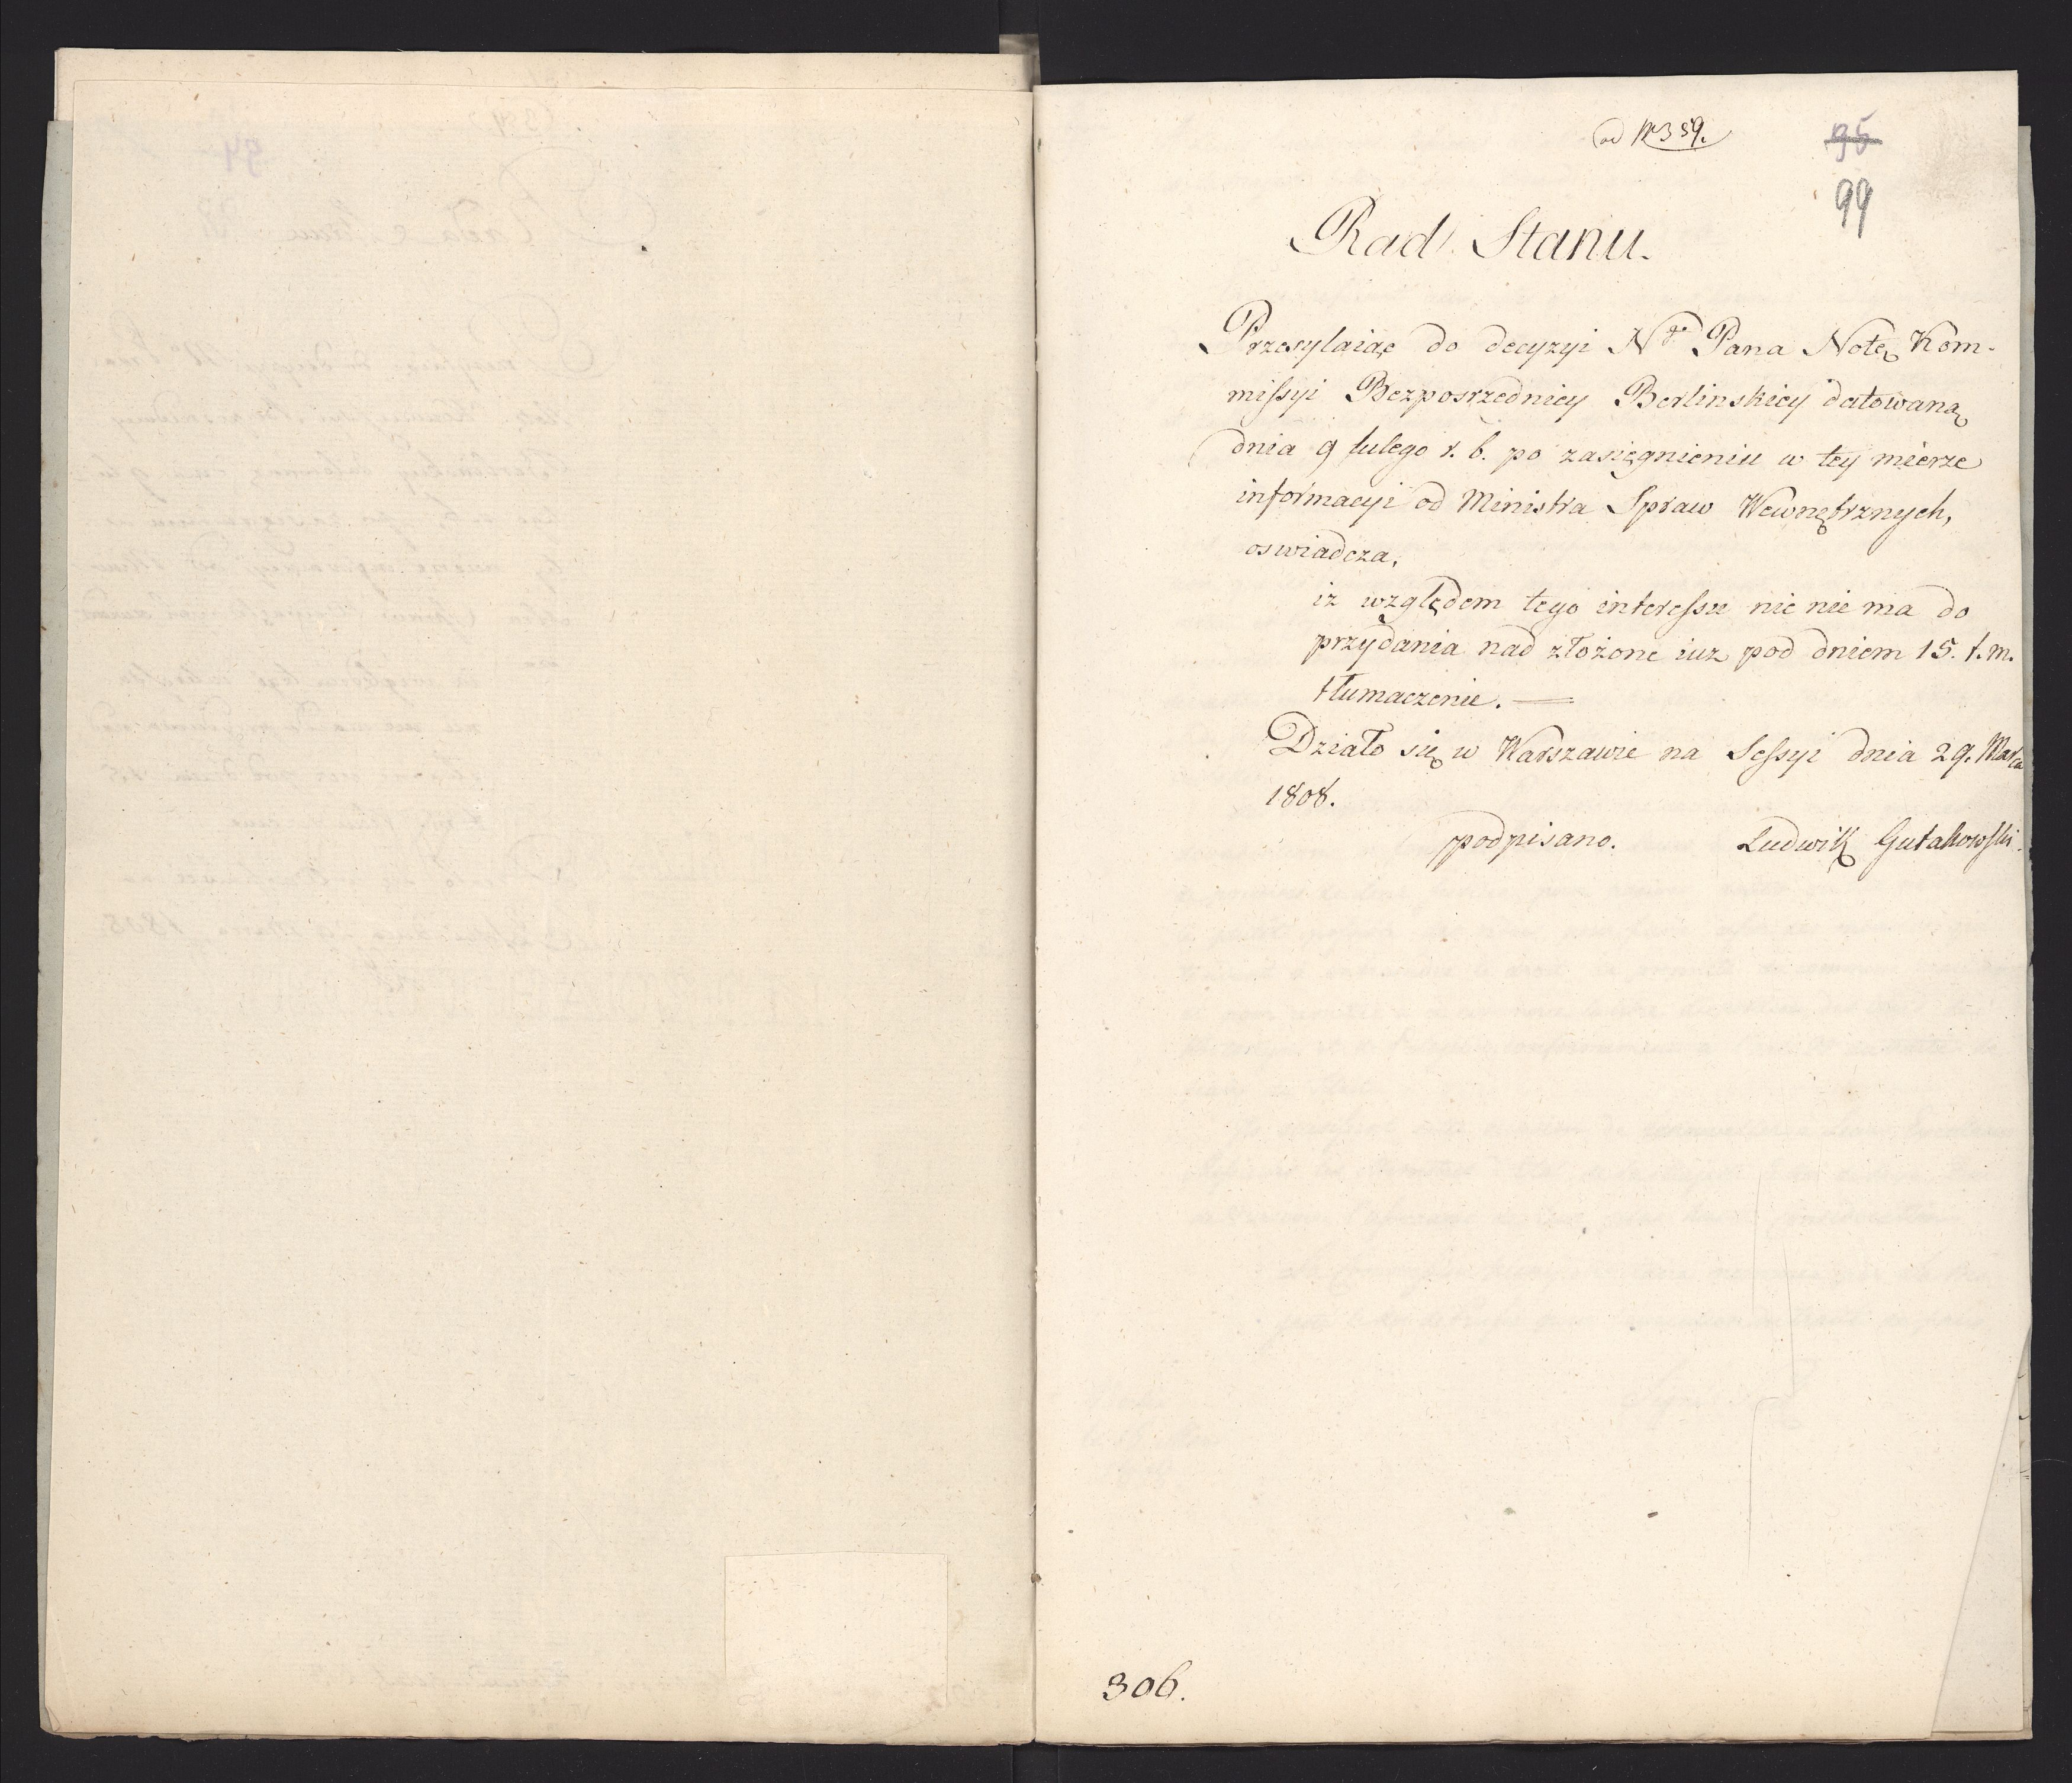 ad N 359.
95
99
Rad. Stanu.
Przesylaiąc do decyzyi Ngo Pana Notę Kom-
missyi Bezposrzedniey Berlinskiey datowaną
dnia 9 lutego r. b. po zasięgnieniu w tey mierze
informacyi od Ministra Spraw Wewnętrznych,
oswiadcza,
iz względem tego interessu nic nie ma do
przydania nad złożone iuz pod dniem 15. t. m.
tłumaczenie. —
Działo się w Warszawie na Sessyi dnia 29. Marca
1808.
podpisano. Ludwik Gutakowski.
306.